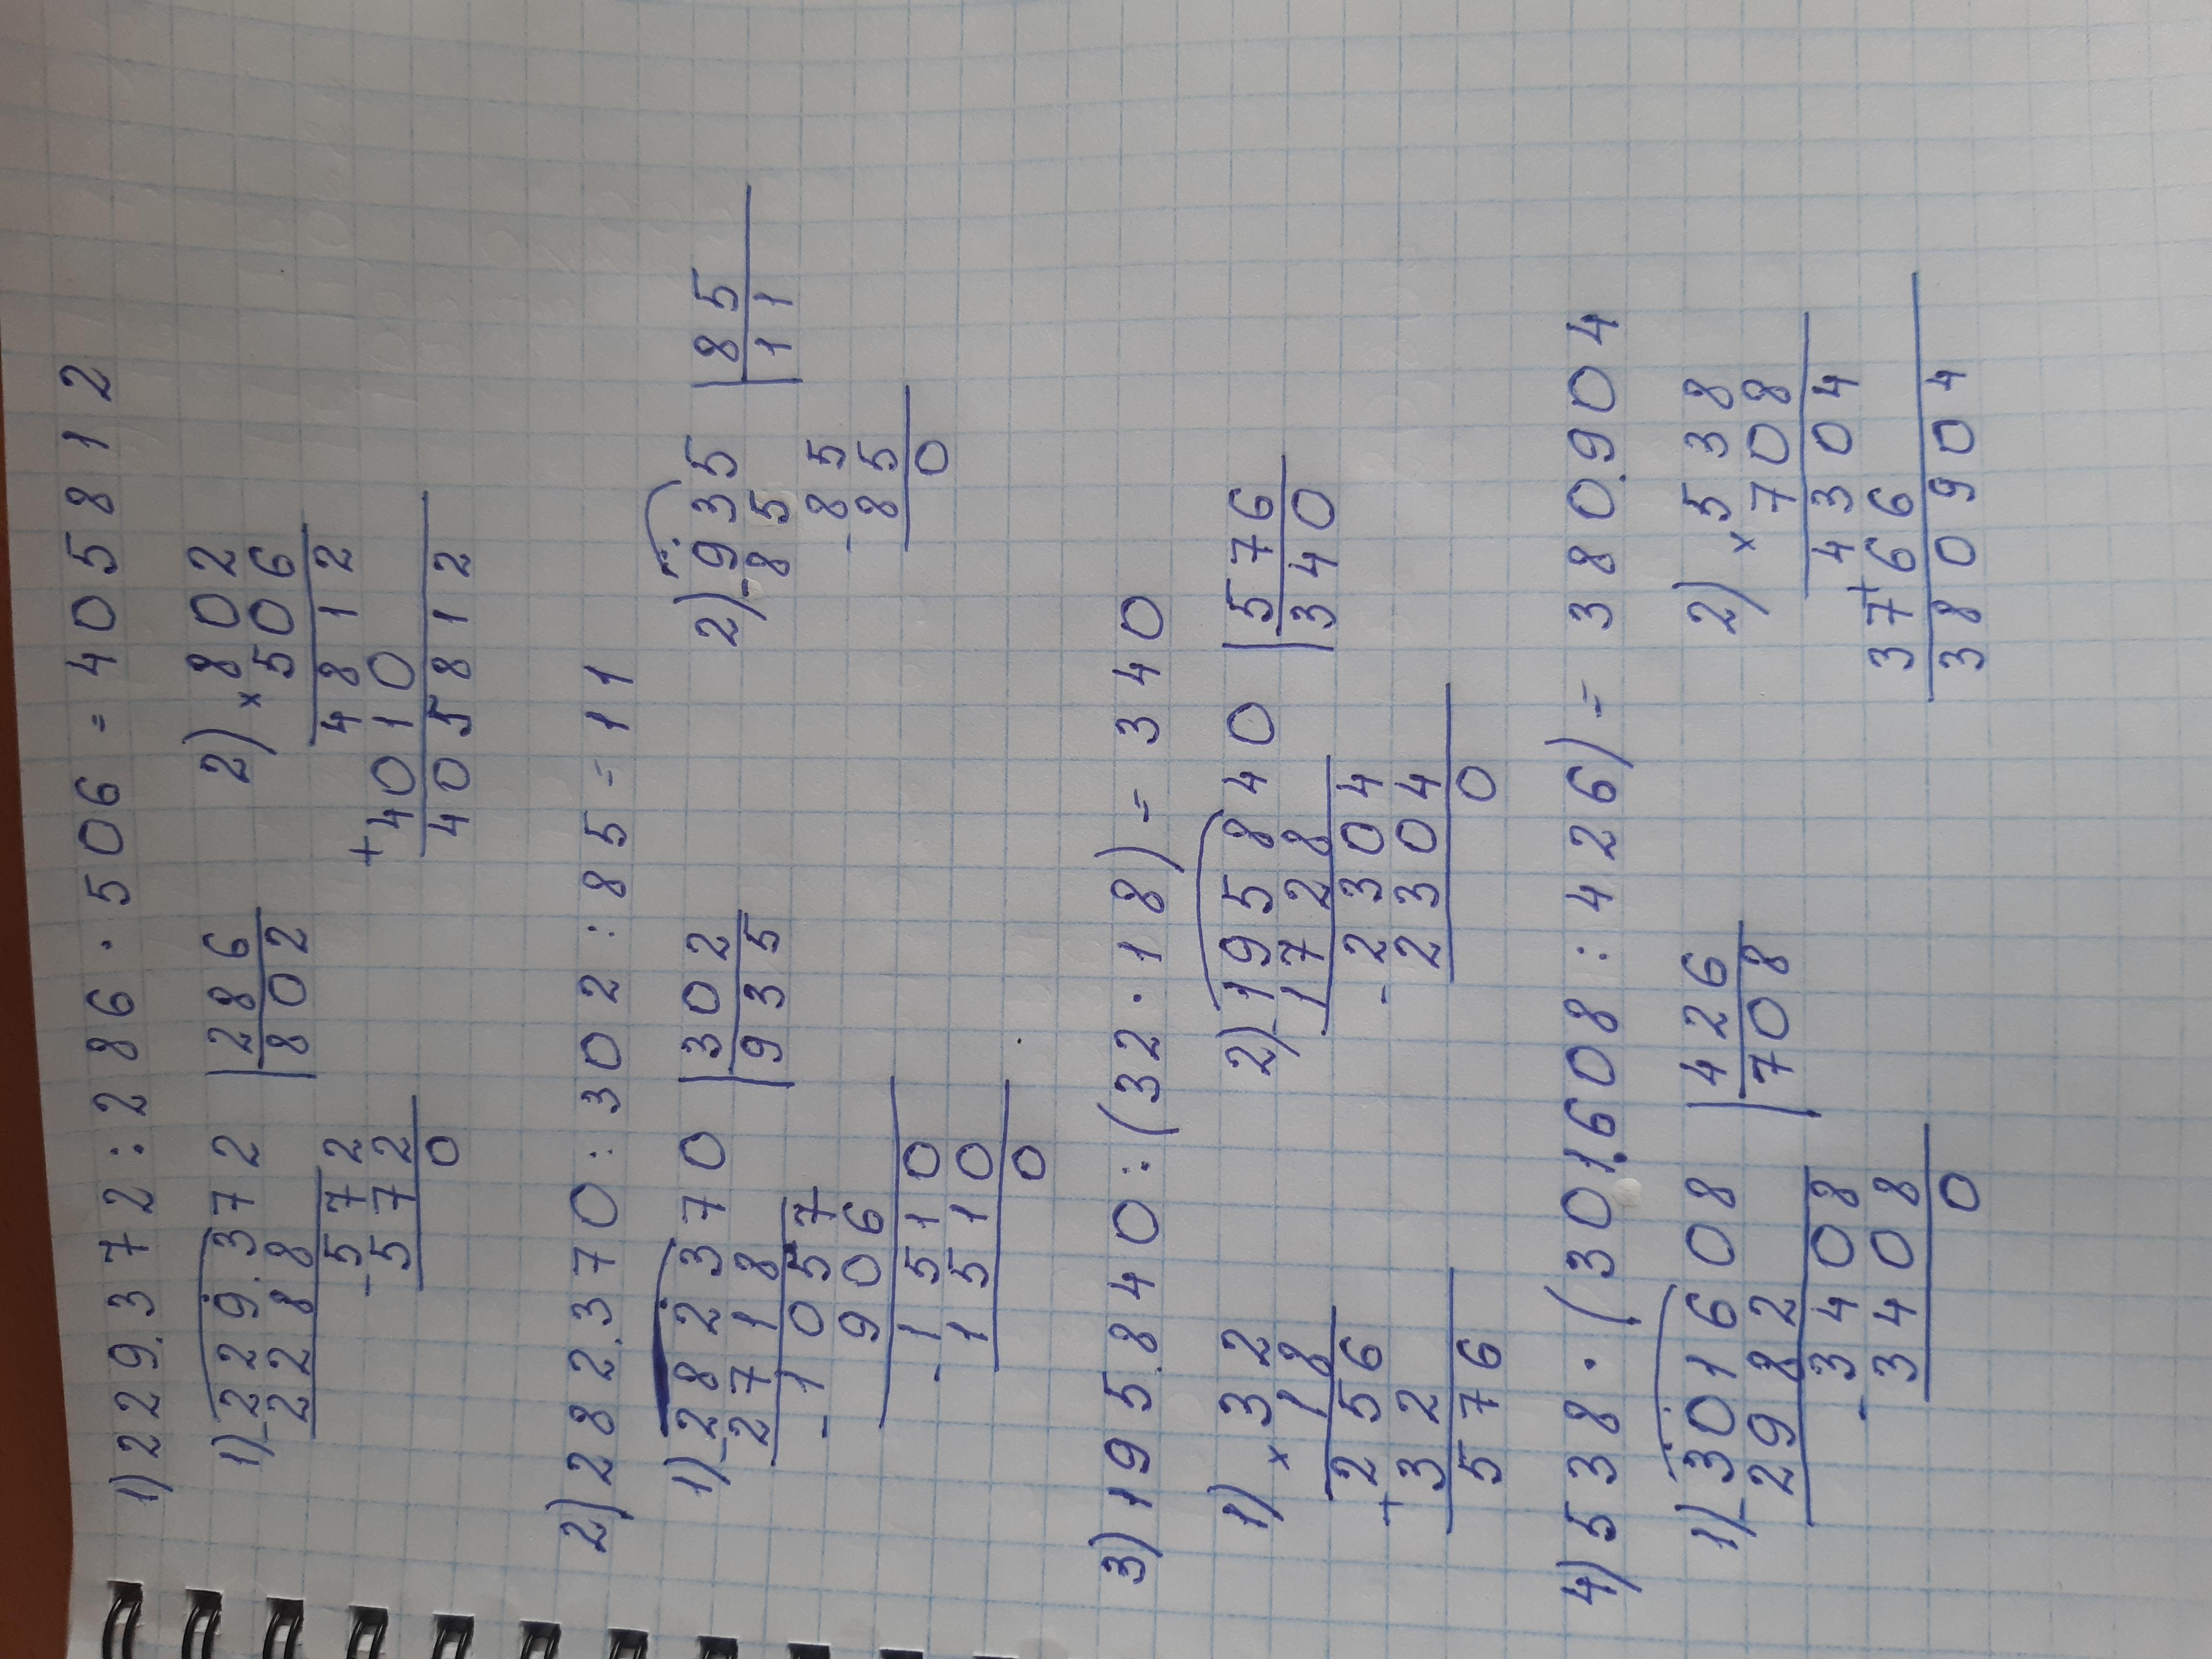 1) 229.372 : 286 · 506 = 405812
1) 229.372 | 286 2) × 802
- 228 8 | 802 506
- 572 4812
572 + 4010
0 405812
2) 282.370 : 302 : 85 = 11
1) 282370 | 302 2) 935 | 85
- 2718 | 935 - 85 | 11
- 1057 - 85
906 85
- 1510 0
1510
0
3) 195.840 : (32 · 18) = 340
1) × 32 2) 195840 | 576
18 - 1728 | 340
256 - 2304
+ 32 2304
576 0
4) 538 · (301.608 : 426) = 380.904
1) 301608 | 426 2) × 538
- 2982 | 708 708
- 3408 4304
3408 + 3766
0 380904